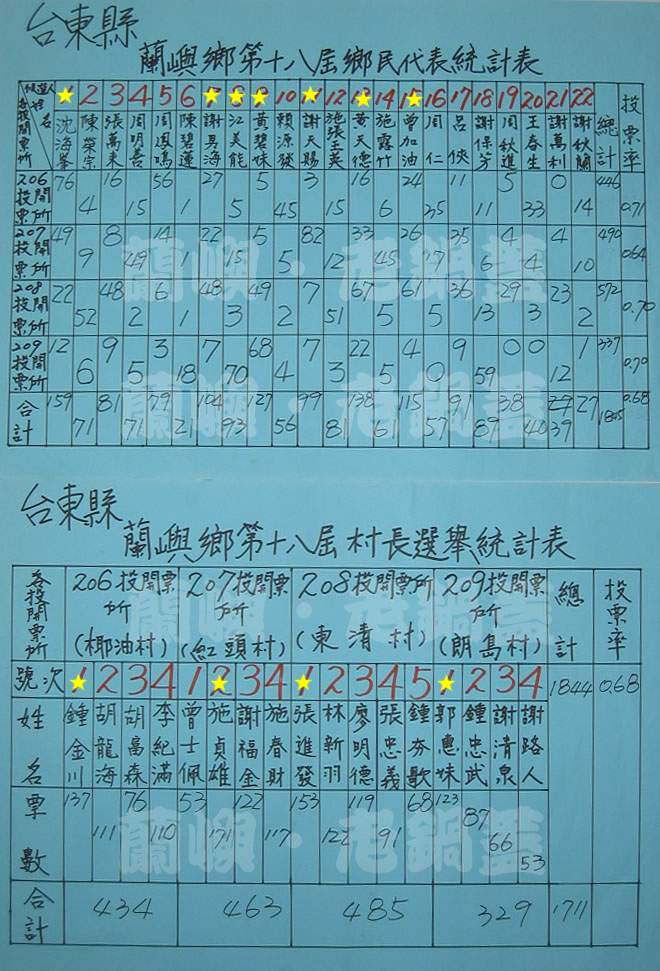 台東縣
蘭嶼鄉第十八屆鄉民代表統計表
候選人姓名 各投開票所 1 2 3 4 5 6 7 8 9 10 11 12 13 14 15 16 17 18 19 20 21 22 總計 投票率
沈海峯 陳榮宗 張萬來 周明善 周鳳鳴 陳碧蓮 謝男海 江美能 黃碧妹 賴源發 謝天賜 施張玉英 黃天德 施露竹 曾加油 周仁 呂俠 謝保芳 周秋進 王春生 謝萬利 謝秋蘭
206投開票所 76 4 16 15 56 1 27 5 5 45 3 15 16 6 24 25 11 11 5 33 0 14 446 0.71
207投開票所 49 9 8 49 14 1 22 15 5 5 82 12 33 45 26 17 35 6 4 4 4 10 490 0.64
208投開票所 22 52 48 2 6 1 48 3 49 2 7 51 67 5 61 5 36 13 29 3 23 2 572 0.70
209投開票所 12 6 9 5 3 18 7 70 68 4 7 3 22 5 4 0 9 59 0 0 12 1 337 0.70
合計 159 71 81 71 79 21 104 93 127 56 99 81 138 61 115 57 91 89 38 40 39 27 1845 0.68
台東縣
蘭嶼鄉第十八屆村長選舉統計表
各投開票所 206投開票所(椰油村) 207投開票所(紅頭村) 208投開票所(東清村) 209投開票所(朗島村) 總計 投票率
號次 1 2 3 4 1 2 3 4 1 2 3 4 5 1 2 3 4 1844 0.68
姓名 鍾金川 胡龍海 胡高森 李紀滿 曾士佩 施貞雄 謝福金 施春財 張進發 林新羽 廖明德 張忠義 鍾夯歌 郭惠妹 鍾忠武 謝清泉 謝路人
票數 137 111 76 110 53 171 122 117 153 122 119 91 68 123 87 66 53
合計 434 463 485 329 1711
蘭嶼・老鍋蓋
蘭嶼・老鍋蓋
蘭嶼・老鍋蓋
蘭嶼・老鍋蓋